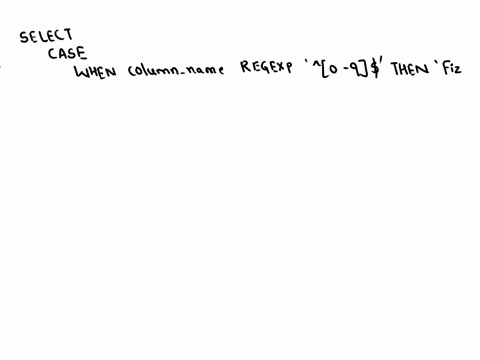 SELECT
CASE
WHEN column_name REGEXP '^[0-9]$' THEN 'Fiz